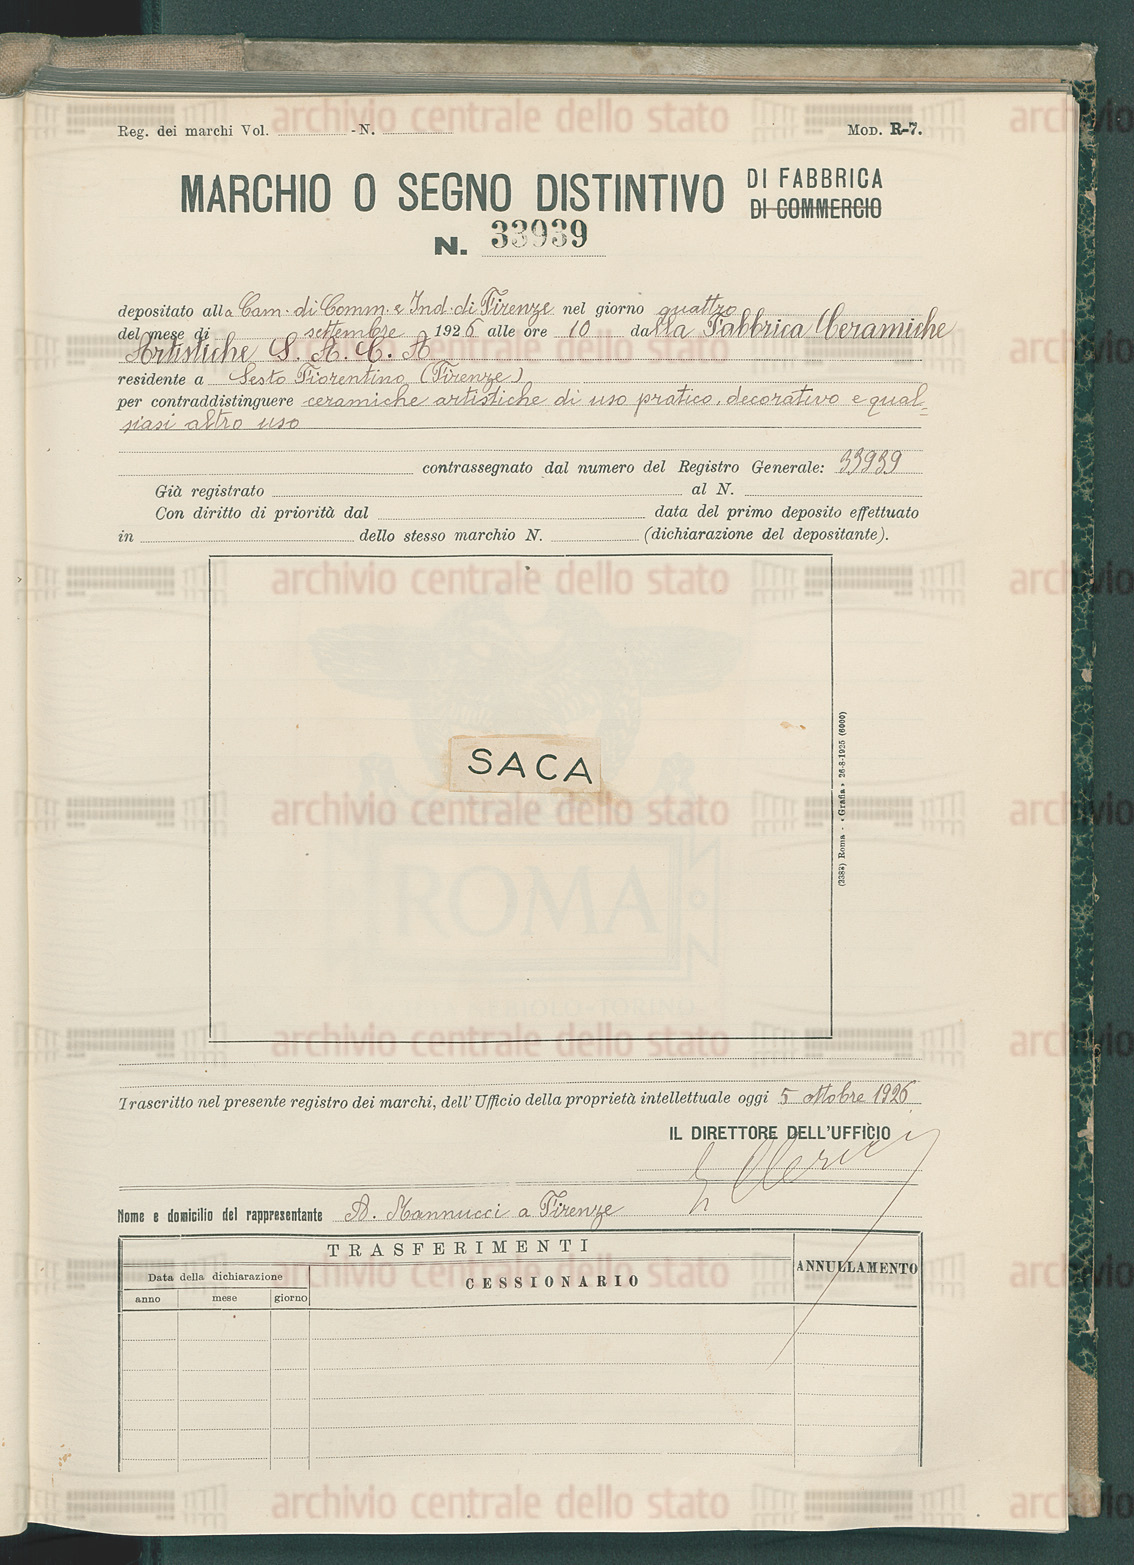 Reg. dei marchi Vol. - N. MOD. R-7.
MARCHIO O SEGNO DISTINTIVO DI FABBRICA
DI COMMERCIO
N. 33939
depositato alla Cam. di Comm. e Ind. di Firenze nel giorno quattro
del mese di settembre 1926 alle ore 10 dalla Fabbrica Ceramiche
Artistiche S. A. C. A
residente a Sesto Fiorentino (Firenze)
per contraddistinguere ceramiche artistiche di uso pratico, decorativo e qual=
siasi altro uso
contrassegnato dal numero del Registro Generale: 33939
Già registrato al N.
Con diritto di priorità dal data del primo deposito effettuato
in dello stesso marchio N. (dichiarazione del depositante).
SACA
(2383) Roma - «Grafia» 26-8-1925 (6000)
ROMA
Trascritto nel presente registro dei marchi, dell'Ufficio della proprietà intellettuale oggi 5 ottobre 1926
IL DIRETTORE DELL'UFFICIO
Nome e domicilio del rappresentante A. Mannucci a Firenze
TRASFERIMENTI
ANNULLAMENTO
Data della dichiarazione
CESSIONARIO
anno mese giorno
archivio centrale dello stato